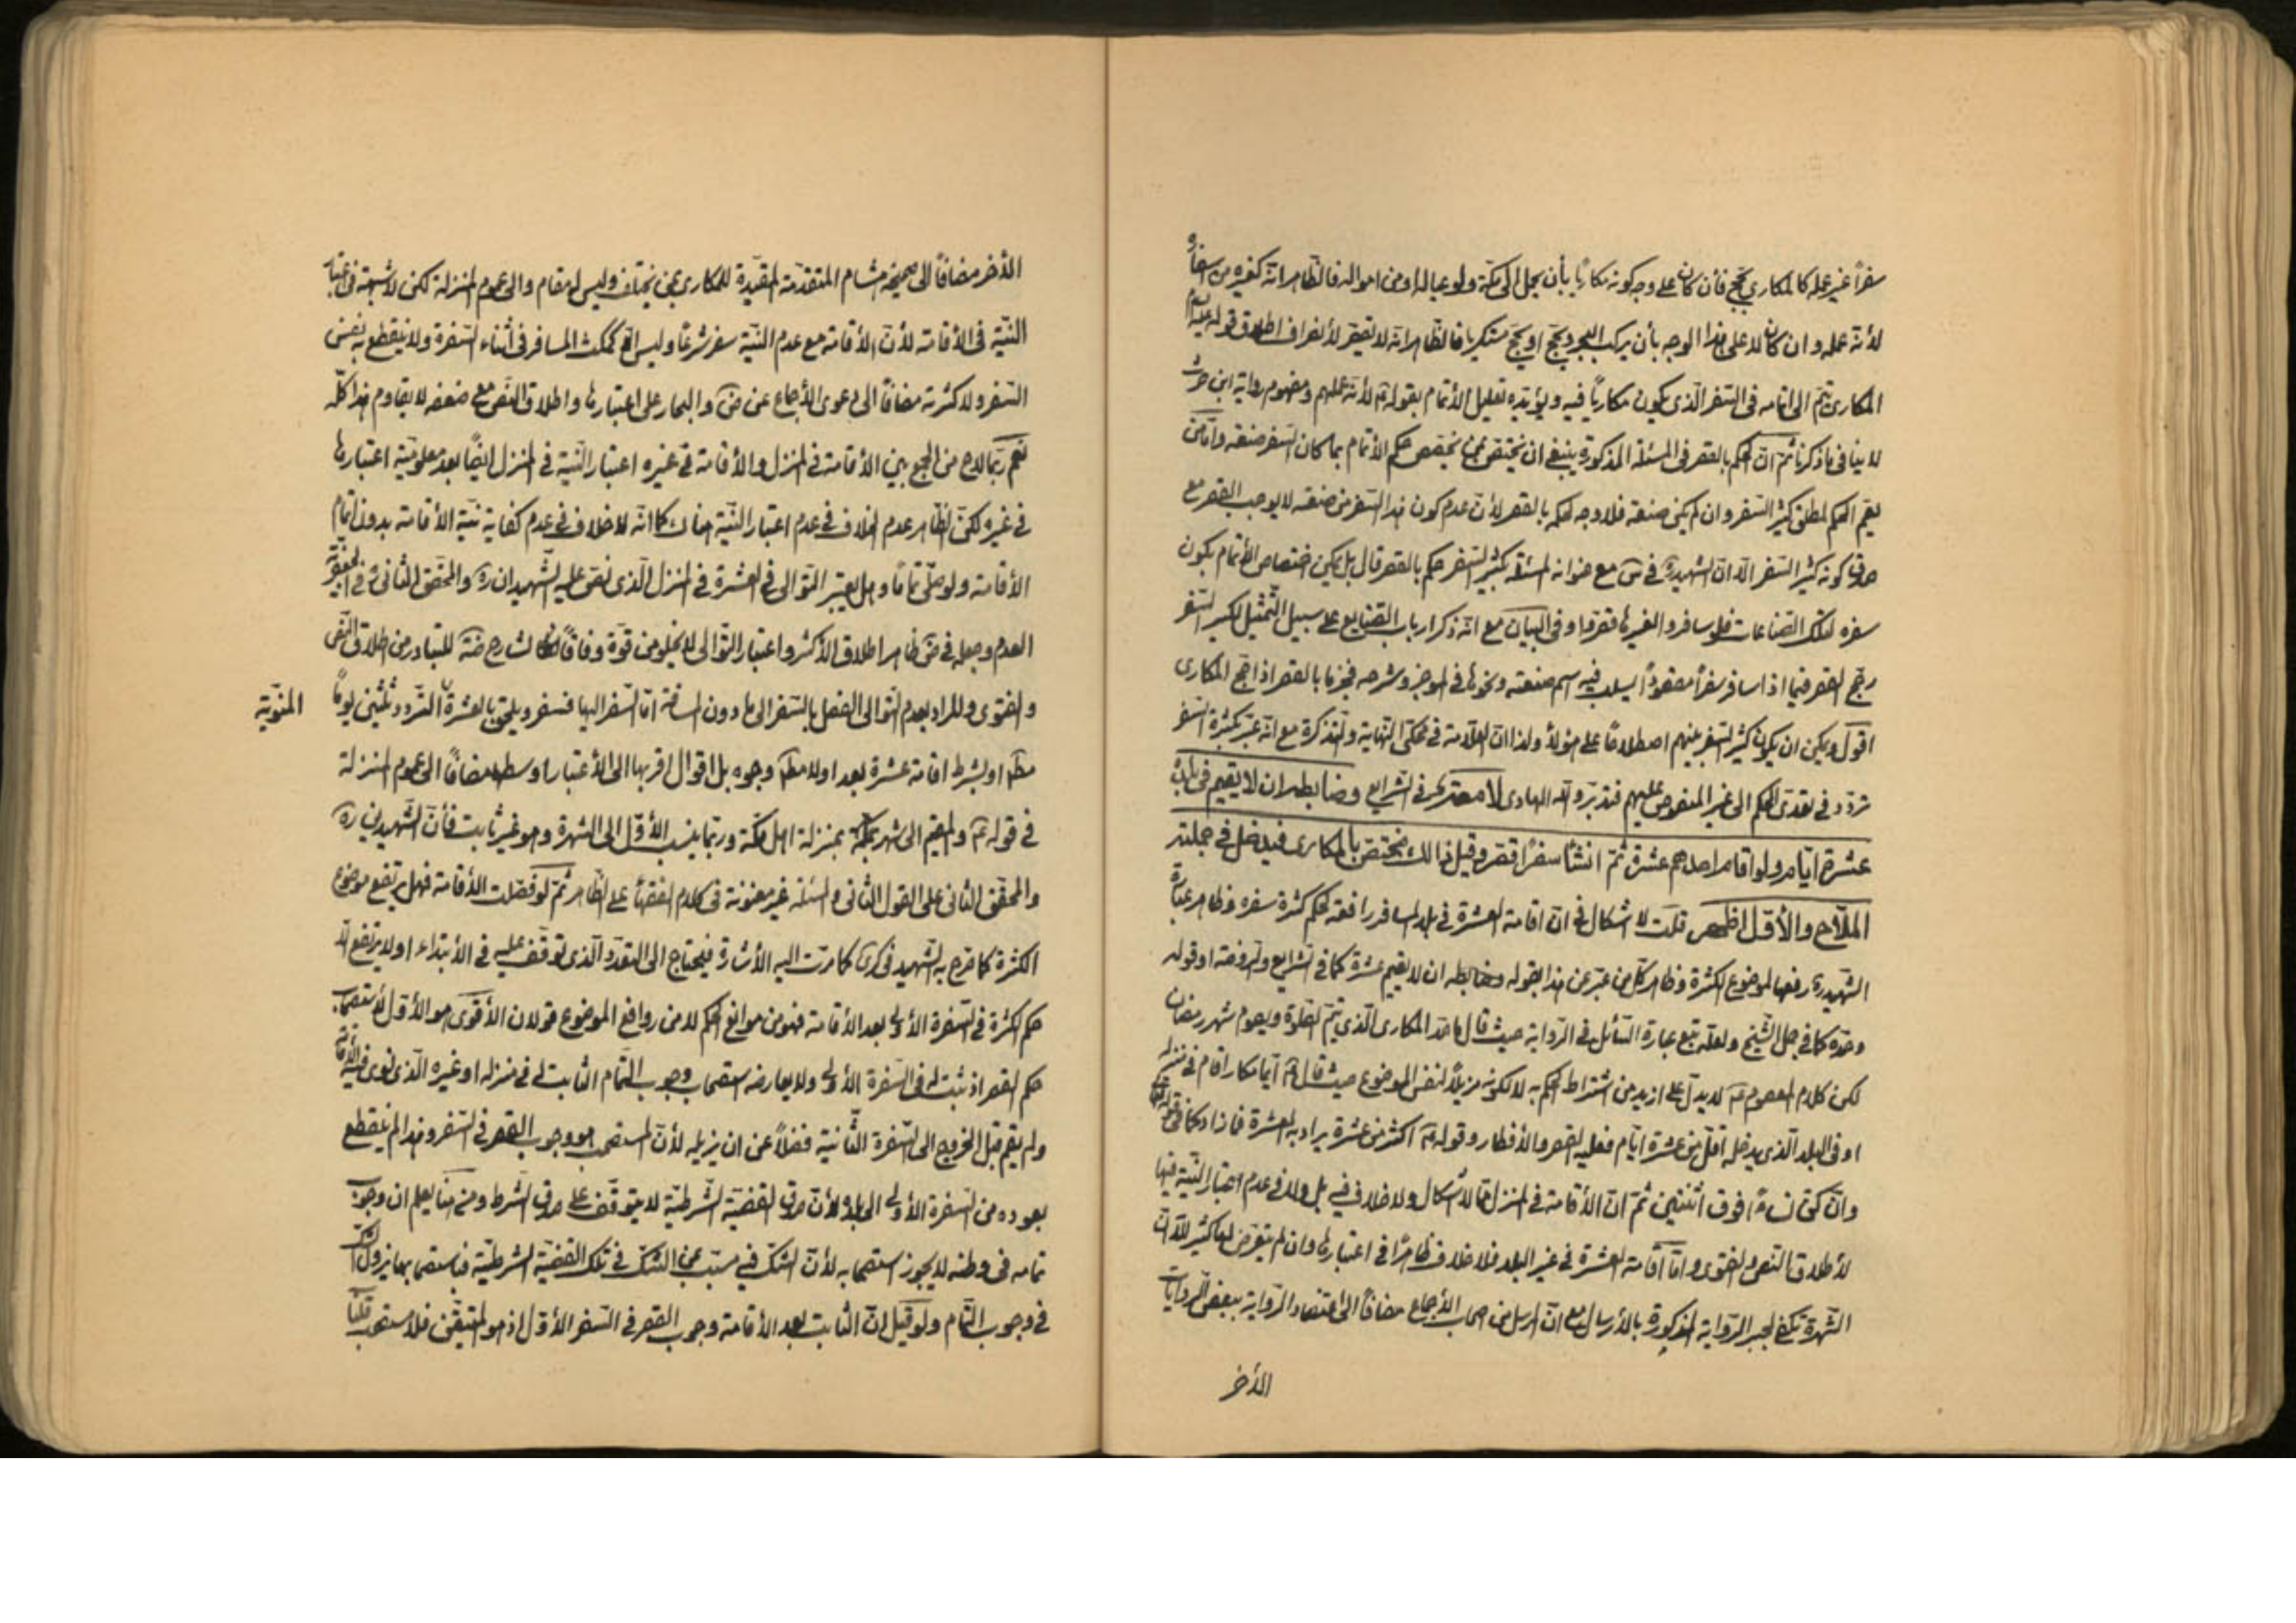 سفراً غير عمله كالمكاري يحج فأن كان على وجه كونه مكارياً بأن يحمل الى مكة ولو عياله او من امواله فالظاهر انه كغيره من اسفاره
لأنه عمله وان كان لا على هذا الوجه بأن يركب البحر ويحج او يحج متكريا فالظاهر انه لا يقصر لأنصراف اطلاق قوله عليه السلام
المكاري يتم الى اتمامه فى السفر الذى يكون مكارياً فيه ويؤيده تعليل الأتمام بقوله ع لأنه عملهم ومفهوم رواية ابن
لا ينافى ما ذكرنا ثم ان الحكم بالقصر فى المسئلة المذكورة ينبغى ان يختص بمن يخصص حكم الأتمام بما كان السفر صنعته وأما من
يعمم الحكم لمطلق كثير السفر وان لم يكن صنعته فلا وجه لحكمه بالقصر لأن عدم كون هذا السفر من صنعته لا يوجب القصر مع
صدق كونه كثير السفر الا ان الشهيد ره فى س مع عنوانه المسئلة بكثير السفر حكم بالقصر قال بل يمكن اختصاص الأتمام بكون
سفره لتلك الصناعات فلو سافروا لغيرها قصروا وفى البيان مع انه ذكر ارباب الصنايع على سبيل التمثيل لكثير السفر
رجح القصر فيما اذا سافر سفراً مقصوداً يسلب فيه اسم صنعته ونحوها فى الموجز وشرحه فجزما بالقصر اذا حج المكارى
اقول ويمكن ان يكون كثير السفر بينهم اصطلاحاً على هؤلاء ولذا ان العلامة فى محكى النهاية والتذكرة مع انه عبر بكثرة السفر
تردد فى تعدى الحكم الى غير المنصوص عليهم فتدبر والله الهادى لا معترى فى الشرايع وضابطه ان لا يقيم فى بلده
عشرة ايام ولو اقام احدهم عشرة ثم انشأ سفرًا قصر وقيل ذالك يختص بالمكارى فيدخل فى جملته
الملاح والأول اظهر قلت لا اشكال فى ان اقامة العشرة فى بلد المسافر رافعة لحكم كثرة سفره وظاهر عبارة
الشهيد ره رفعها لموضوع الكثرة وظاهر كل من عبر عن هذا بقوله وضابطه ان لا يقيم عشرة كما فى الشرايع والروضة او قوله
وحده كما فى جمل الشيخ ولعله تبع عبارة السائل فى الرواية حيث قال ما حد المكارى الذى يتم الصلوة ويصوم شهر رمضان
لكن كلام المعصوم ع لا يدل على ازيد من اشتراط الحكم به لا لكونه مزيلاً لنفس الموضوع حيث قال ع ايما مكار اقام فى منزله
او فى البلد الذى يدخله اقل من عشرة ايام فعليه القصر والأفطار وقوله ع اكثر من عشرة يراد به العشرة فما زاد كما فى قوله تعالى
وان كن نساءً فوق اثنتين ثم ان الأقامة فى المنزل مما لا اشكال ولا خلاف فيه بل ولا فى عدم اعتبار النية فيها
لأطلاق النص والفتوى واما اقامة العشرة فى غير البلد فلا خلاف ظاهرًا فى اعتبارها وان لم يتعرض لها كثير الا ان
الشهرة تكفى لجبر الرواية المذكورة بالأرسال مع ان المرسل من اصحاب الأجماع مضافاً الى اعتضاد الرواية ببعض الروايات
الأخر
الأخر مضافاً الى صحيحة هشام المتقدمة المقيدة للمكارى بمن يختلف وليس له مقام والى عموم المنزلة لكن لا شبهة فى اعتبار
النية فى الأقامة لأن الأقامة مع عدم النية سفر شرعًا وليس الا كمكث المسافر فى أثناء السفرة ولا ينقطع به نفس
السفر ولا كثرته مضافاً الى دعوى الأجماع عن ض والبحار على اعتبارها واطلاق النص مع ضعفه لا يقاوم هذا كله
نعم ربما لاح من الجمع بين الأقامة فى المنزل والأقامة فى غيره اعتبار النية فى المنزل ايضًا بعد معلومية اعتبارها
فى غيره لكن الظاهر عدم الخلاف فى عدم اعتبار النية هناك كما انه لا خلاف فى عدم كفاية نية الأقامة بدون اتمام
الأقامة ولو صلى تماماً وهل يعتبر التوالى فى العشرة فى المنزل الذى نص عليه الشهيدان ره والمحقق الثانى ره فى الجعفرية
العدم وجعله فى ض ظاهر اطلاق الأكثر واعتبار التوالى لا يخلو من قوة وفاقاً لشارح للتبادر من اطلاق النص
والفتوى والمراد بعدم التوالى الفصل بالسفر الى ما دون المسافة اما السفر اليها فسفر ويلحق بالعشرة التردد ثلثين يوماً
المنوية
مطلقا او بشرط اقامة عشرة بعد او لا مطلقا وجوه بل اقوال اقربها الى الأعتبار اوسطها مضافاً الى عموم المنزلة
فى قوله ع والمقيم الى شهر بمكة بمنزلة اهل مكة وربما ينسب الأول الى الشهرة وهو غير ثابت فأن الشهيدين ره
والمحقق الثانى على القول الثانى والمسئلة غير معنونة فى كلام الفقهاء على الظاهر ثم لو فصلت الأقامة فهل يرتفع موضوع
الكثرة كما صرح به الشهيد فى كرى كما مرت اليه الأشارة فيحتاج الى التعدد الذى توقف عليه فى الأبتداء او لا يرتفع الا
حكم الكثرة فى السفرة الأولى بعد الأقامة فهو من موانع الحكم لا من روافع الموضوع قولان الأقوى هو الأول لأستصحاب
حكم القصر اذ ثبت له فى السفرة الأولى ولا يعارضه استصحاب وجوب التمام الثابت له فى منزله او غيره الذى نوى فيه الأقامة
ولم يقم قبل الخروج الى السفرة الثانية فضلاً عن ان يزيله لأن المستصحب هو وجوب القصر فى السفر وهذا لم ينقطع
بعوده من السفرة الأولى الى بلده لأن صدق القضية الشرطية لا يتوقف على صدق الشرط ومن هنا يعلم ان وجوب
تمامه فى وطنه لا يجوز استصحابه لأن الشك فيه مسبب عن الشك فى تلك القضية الشرطية فباستصحابها يزول الشك
فى وجوب التمام ولو قيل ان الثابت بعد الأقامة وجوب القصر فى السفر الأول اذ هو المتيقن فلا مستصحب قلنا